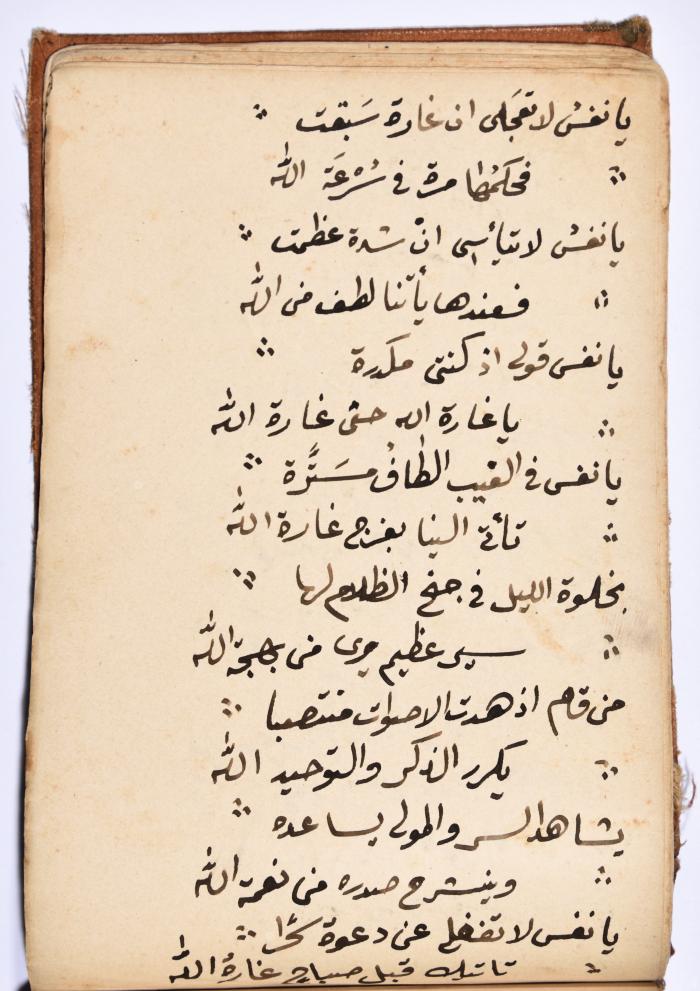 يا نفس لا تعجلي ان غارة سَبَقت
فحكمُها مرة في سُرْعَة الله
يا نفس لا تيأسي انْ شدة عظمت
فعندها يأتنا لطف من الله
يا نفس قولي اذ كنتي مكدرة
يا غارة الله حثي غارة الله
يا نفس في الغيب الطافُ مسَتَّرة
تأتي الينا بفرج غارة الله
بخلوة الليل في جنح الظلام لها
سر عظيم يرى من بهجة الله
من قام اذ هدت الاصوات منتصبا
يكرر الذكر والتوحيد الله
يشاهد السر والمولى يساعده
وينشرح صدره من نعمة الله
يا نفس لا تغفلي عن دعوة
تاتيك قبل صباح غارةُ الله